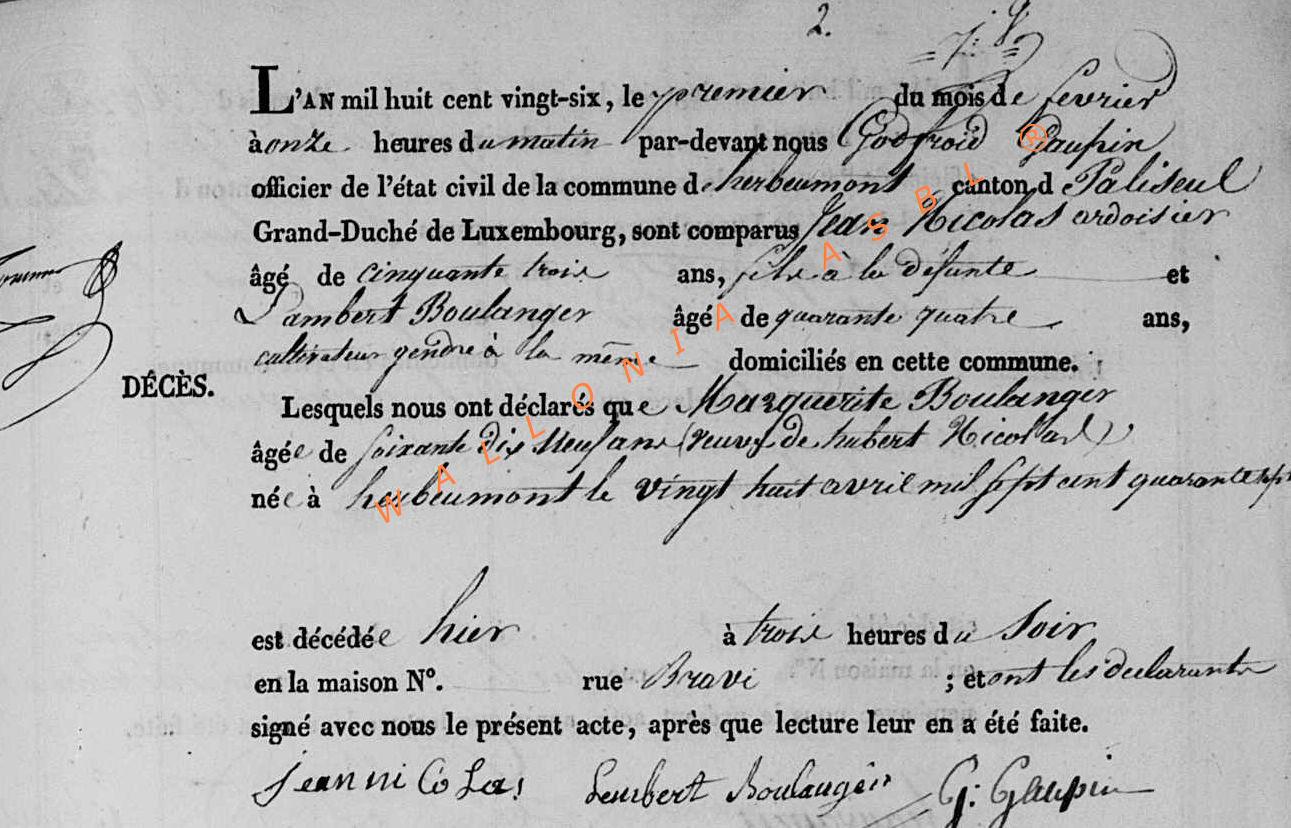 2.
L'AN mil huit cent vingt-six, le premier du mois de fevrier
à onze heures du matin par-devant nous Godfroid Gaupin
officier de l'état civil de la commune d'herbeumont canton d Paliseul
Grand-Duché de Luxembourg, sont comparus Jean Nicolas ardoisier
âgé de cinquante trois ans, fils à la défunte et
Lambert Boulanger âgé de quarante quatre ans,
cultivateur gendre à la même domiciliés en cette commune.
DÉCÈS.
Lesquels nous ont déclarés que Marguerite Boulanger
âgée de soixante dix neuf ans (veuve de hubert Nicolas)
née à herbeumont le vingt huit avril mil sept cent quarante sept
est décédée hier à trois heures du soir
en la maison N°. rue Bravi ; et ont les déclarants
signé avec nous le présent acte, après que lecture leur en a été faite.
jean ni Colas Lembert Boulanger G: Gaupin
WALLONIA ASBL ®